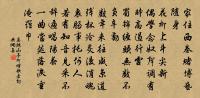 家住西秦賭博藝
隨身
花柳上斗尖新
偶學念奴聲調有
時高遏行雲蜀錦
纏頭無數不負辛
勤
數年來往咸京道
殘杯冷炙謾消魂
衷腸事托何人
若有知音見采不
辭遍唱陽春
一曲當筵落淚重
掩羅巾